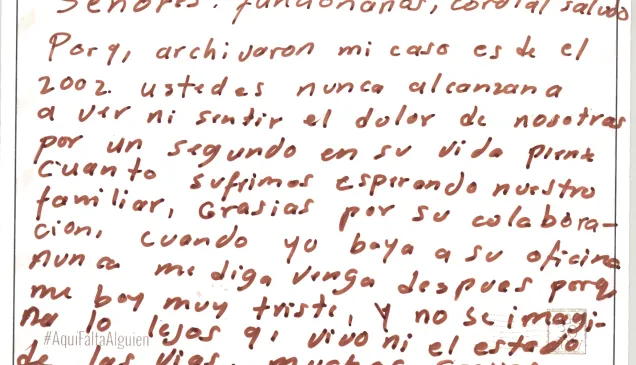 Señores: funcionarias, cordial saludo
Porq, archivaron mi caso es de el
2002. ustedes nunca alcanzan a
a ver ni sentir el dolor de nosotras
por un segundo en su vida piense
cuanto sufrimos esperando nuestro
familiar, Grasias por su colabora-
cion, cuando yo baya a su oficina
nunca me diga venga despues porq
me boy muy triste, y no se imagi-
na lo lejos q, vivo ni el estado
#AquíFaltaAlguien
de las vias.